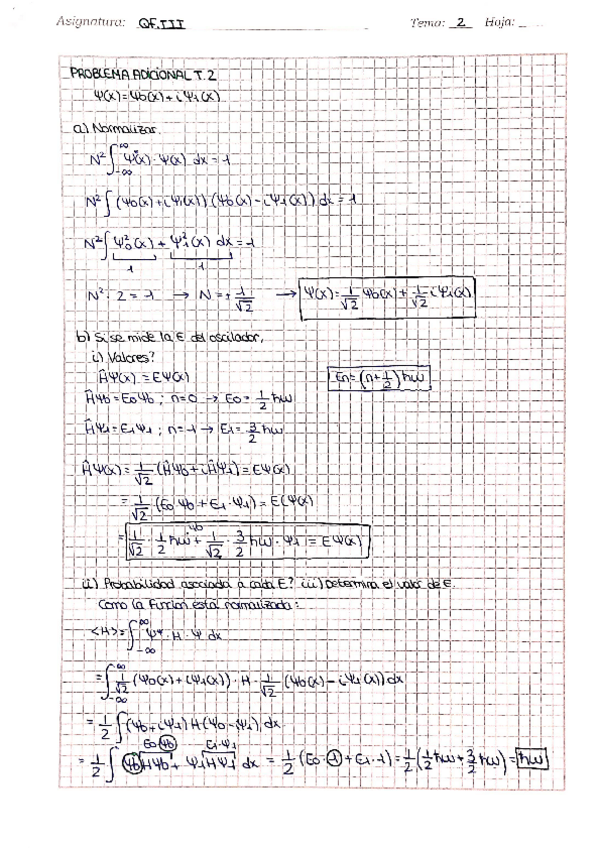 Asignatura: QF.III Tema: 2 Hoja:
PROBLEMA ADICIONAL T.2
Ψ(x)=Ψ0(x)+iΨ1(x)
a) Normalizar.
N² ∫_{-∞}^{∞} Ψ*(x)·Ψ(x) dx = 1
N² ∫ (Ψ0(x)+iΨ1(x)) (Ψ0(x)-iΨ1(x)) dx = 1
N² ∫ Ψ0²(x) + Ψ1²(x) dx = 1
1 1
N²·2 = 1 → N = + 1/√2 → Ψ(x) = 1/√2 Ψ0(x) + 1/√2 iΨ1(x)
b) Si se mide la E del oscilador,
i) Valores?
ĤΨ(x) = EΨ(x) En = (n+1/2) ħω
ĤΨ0 = E0Ψ0 ; n=0 → E0 = 1/2 ħω
ĤΨ1 = E1Ψ1 ; n=1 → E1 = 3/2 ħω
ĤΨ(x) = 1/√2 (ĤΨ0 + iĤΨ1) = EΨ(x)
= 1/√2 (E0Ψ0 + E1·Ψ1) = E(Ψ(x)
= 1/√2 · 1/2 ħω Ψ0 + 1/√2 · 3/2 ħω · Ψ1 = EΨ(x)
ii) Probabilidad asociada a cada E? iii) Determina el valor de E.
Como la función está normalizada:
<H> = ∫_{-∞}^{∞} Ψ*·H·Ψ dx
= ∫_{-∞}^{∞} 1/√2 (Ψ0(x)+iΨ1(x))·H· 1/√2 (Ψ0(x)-iΨ1(x)) dx
= 1/2 ∫ (Ψ0+iΨ1) H (Ψ0-iΨ1) dx
E0Ψ0 E1·Ψ1
= 1/2 ∫ Ψ0HΨ0 + Ψ1HΨ1 dx = 1/2 (E0·1 + E1·1) = 1/2 (1/2 ħω + 3/2 ħω) = ħω